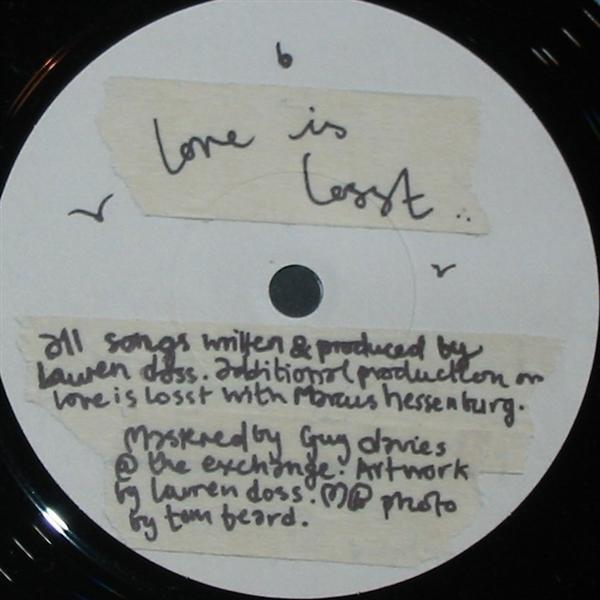 b
love is
losst..
all songs written & produced by
lauren doss. additional production on
love is losst with Marcus hessenburg.
Mastered by Guy davies
@ the exchange. Artwork
by lauren doss. photo
by tom beard.